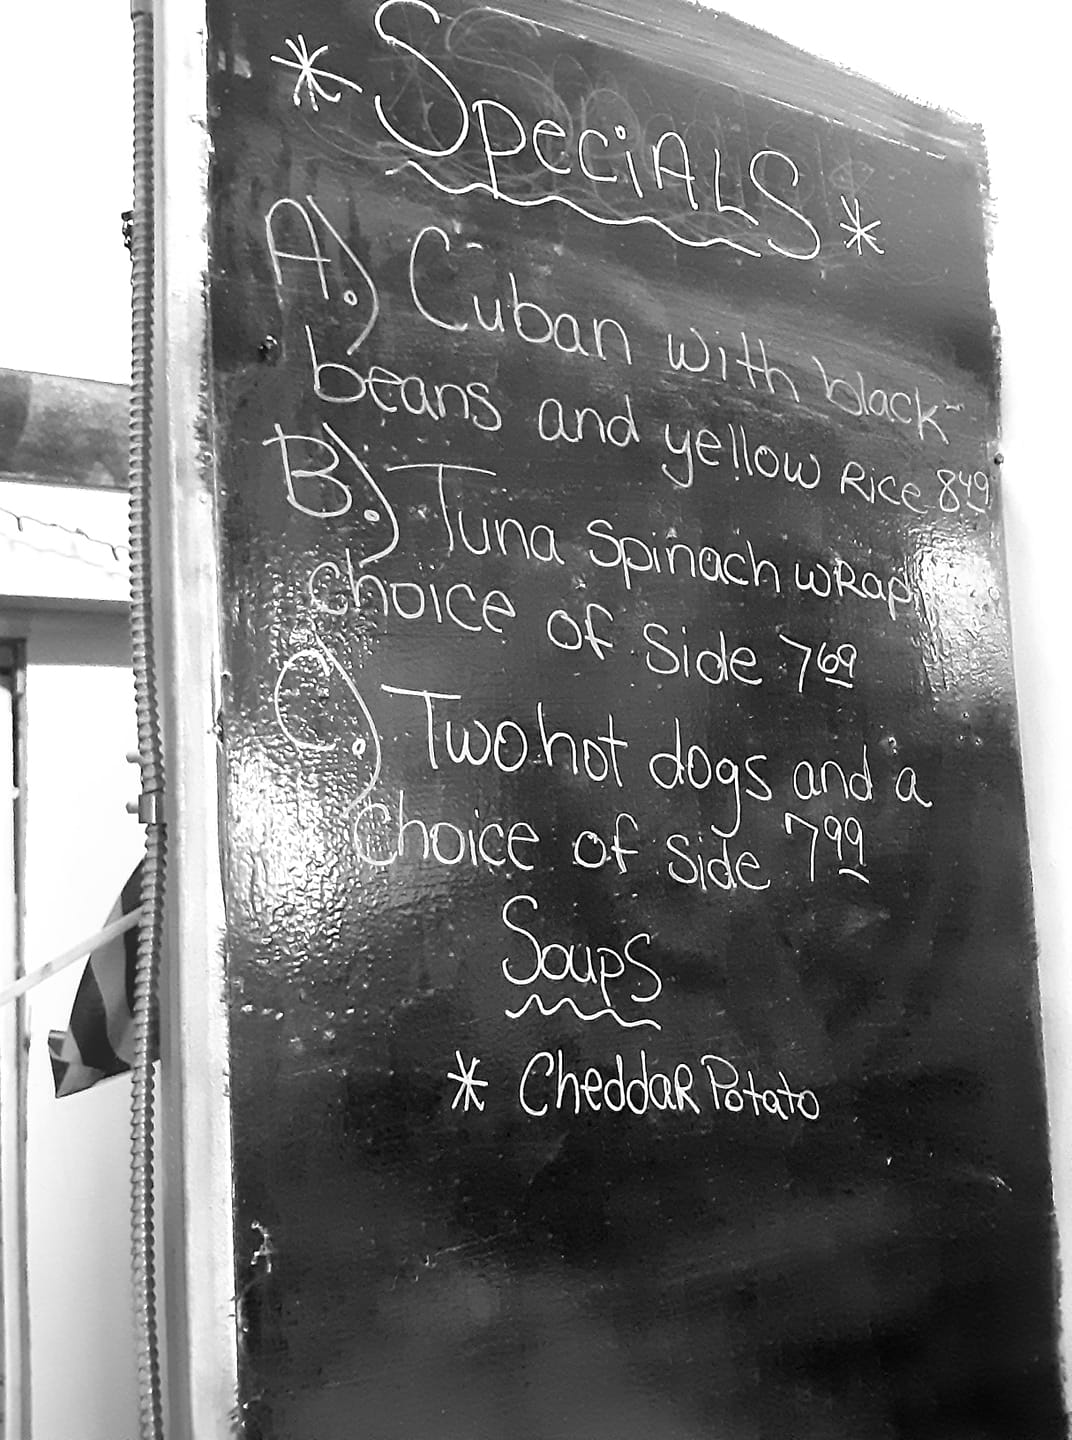 * SpeciALS *
A.) Cuban with black
beans and yellow Rice 849
B.) Tuna Spinach wRap
choice of Side 769
C.) Two hot dogs and a
choice of side 799
Soups
* CheddaR Potato